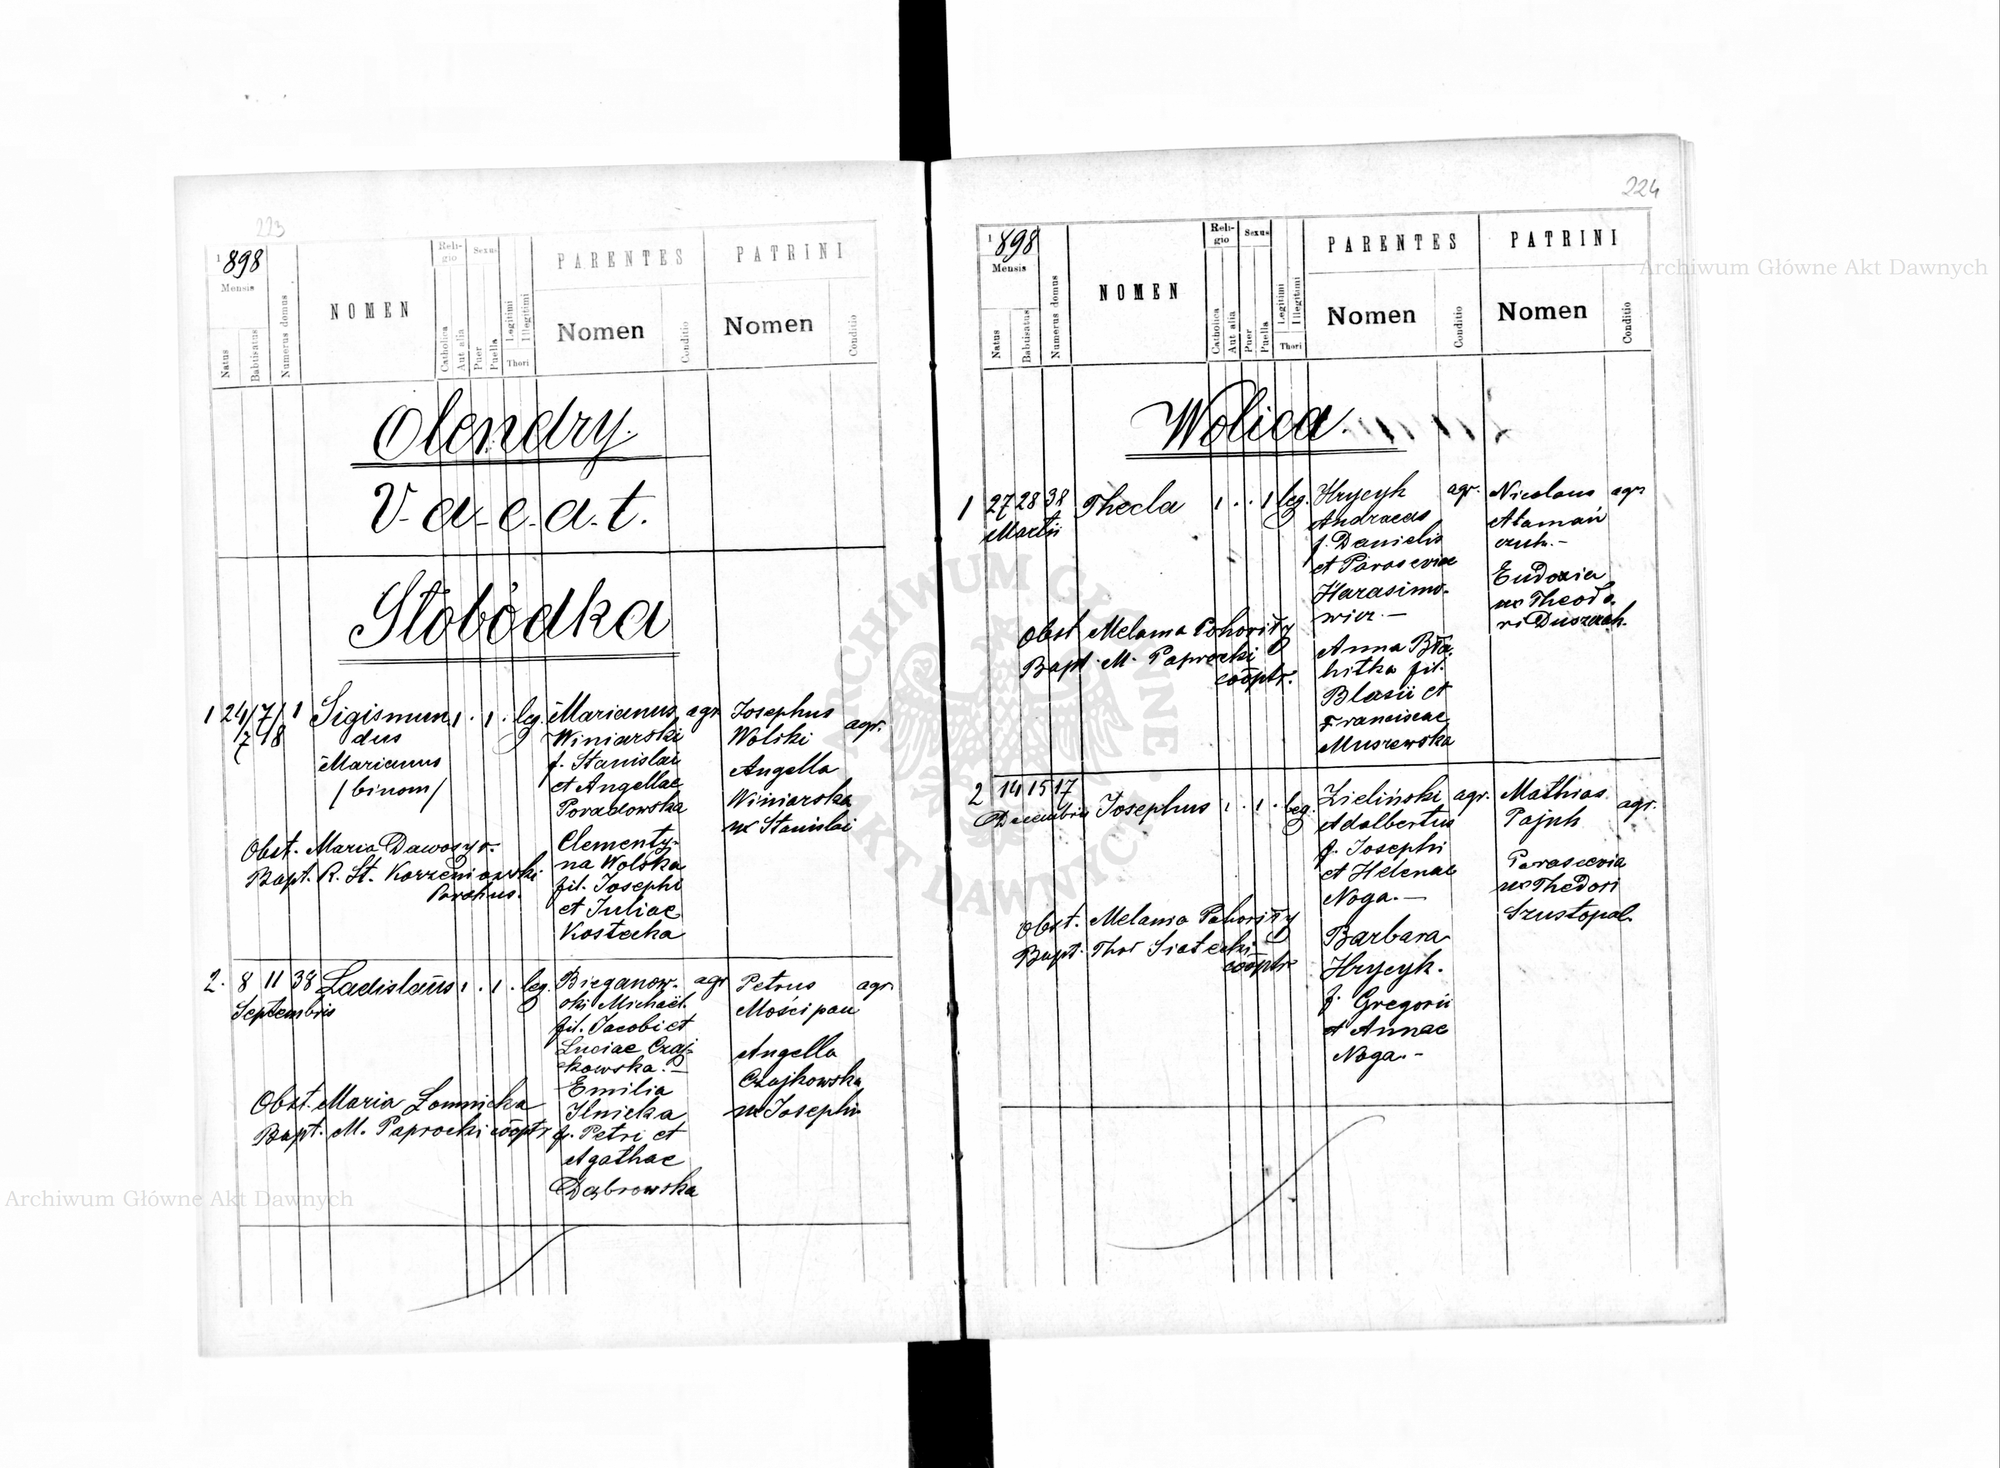 223
1898
Mensis
Natus
Babtisatus
Numerus domus
NOMEN
Reli-
gio
Catholica
Aut alia
Sexus
Puer
Puella
Legitimi
Illegitimi
Thori
PARENTES
Nomen
Conditio
PATRINI
Nomen
Conditio
Olendry.
V-a-c-a-t.
Słobódka
1 24/7 7/8 1 Sigismun 1 . 1 . leg. Marianus agr. Josephus agr.
dus Winiarski Wolski
Marianus f. Stanislai Angella
/binom/ et Angellae Winiarska
Porablowska ux Stanislai
Obst. Maria Clementy-
Bapt. R. St. Korzeniowski na Wolska
Parohus. fil. Josephi
et Juliae
Kostecka
2. 8 11 38 Ladislaus 1 . 1 . leg. Bieganow- agr Petrus agr.
Septembris ski Michael Mościpan
fil. Jacobi et
Luciae Czaj- Angella
kowska. Czajkowska
Emilia ux Josephi
Obst. Maria Łomnicka Ilnicka
Bapt. M. Paprocki cooptr f. Petri et
Agathae
Dąbrowska
224
1898
Mensis
Natus
Babtisatus
Numerus domus
NOMEN
Reli-
gio
Catholica
Aut alia
Sexus
Puer
Puella
Legitimi
Illegitimi
Thori
PARENTES
Nomen
Conditio
PATRINI
Nomen
Conditio
Wolica.
1 27 28 38 Thecla 1 . . 1 leg. Hrycyk agr. Nicolaus agr
Martii Andraeas Atamań
f. Danielis czuk.-
et Parasceviae Eudoxia
Harasimo- ux Theodo-
wicz.- ri
Obst Melania Pohoriły Anna
Bapt. M. Paprocki fil.
cooptr. Blasii et
Franciscae
Muszewska
2 14 15 17 Josephus 1 . 1 . leg. Zieliński agr. Mathias agr.
Decembris Adalbertus Pajuk
f. Josephi
et Helenae Parascevia
Noga.- ux Thedori
Obst. Melania Pohoriły Szustopal.
Bapt. Barbara
cooptr Hrycyk.
f. Gregorii
et Annae
Noga.-
ARCHIWUM GŁÓWNE AKT DAWNYCH
Archiwum Główne Akt Dawnych
Archiwum Główne Akt Dawnych